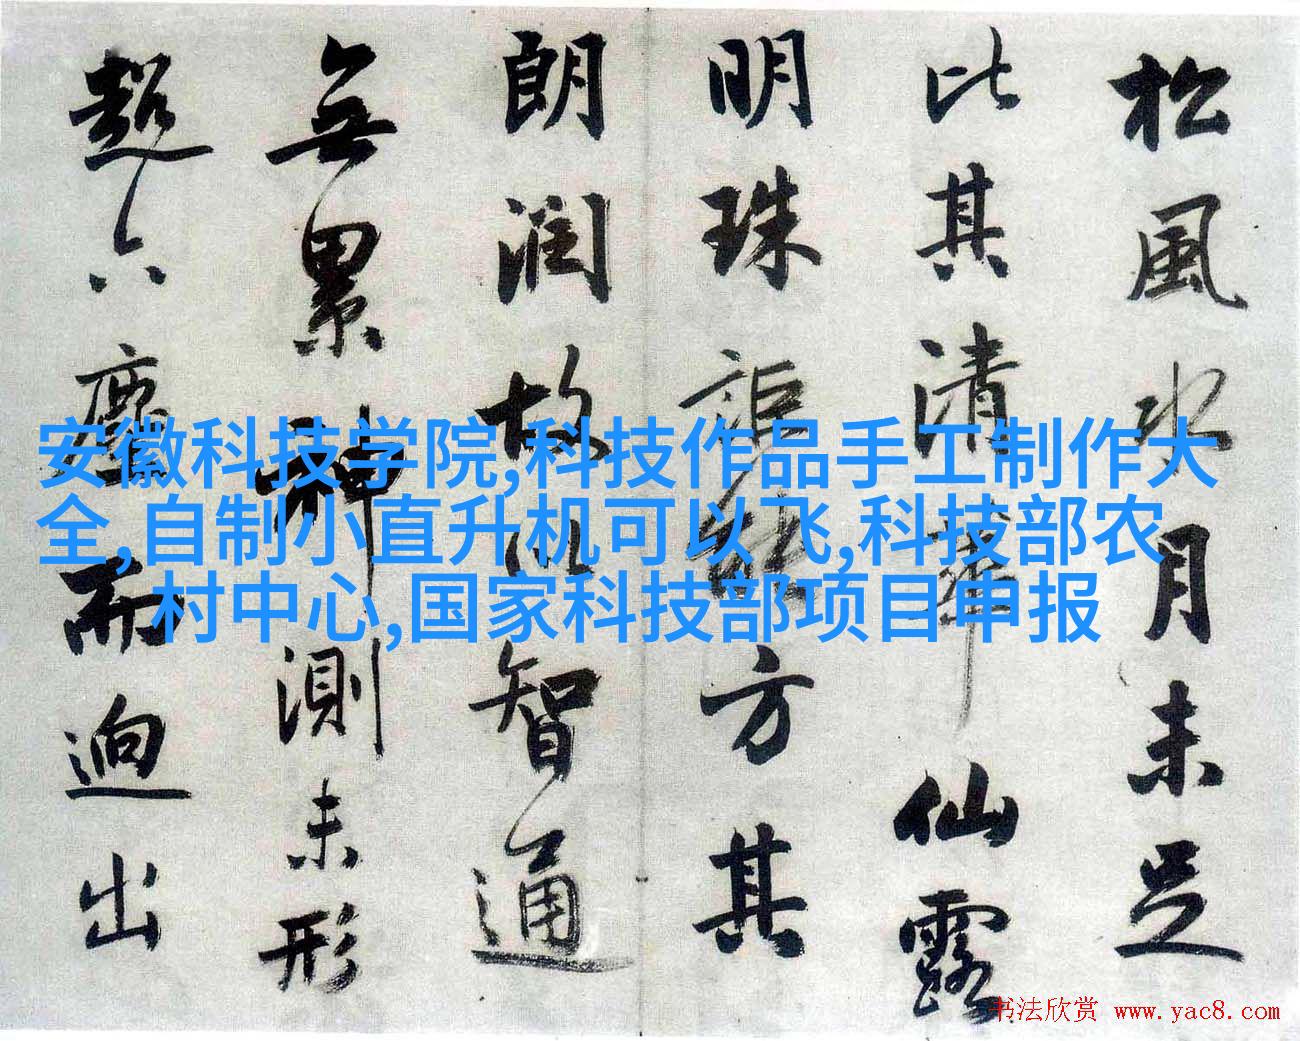 松風水月未足
比其清華仙露
明珠詎能方其
朗潤故以智通
無累神測未形
超六塵而迥出
安徽科技学院,科技作品手工制作大
全,自制小直升机可以飞,科技部农
村中心,国家科技部项目申报
书法欣赏 www.yac8.com